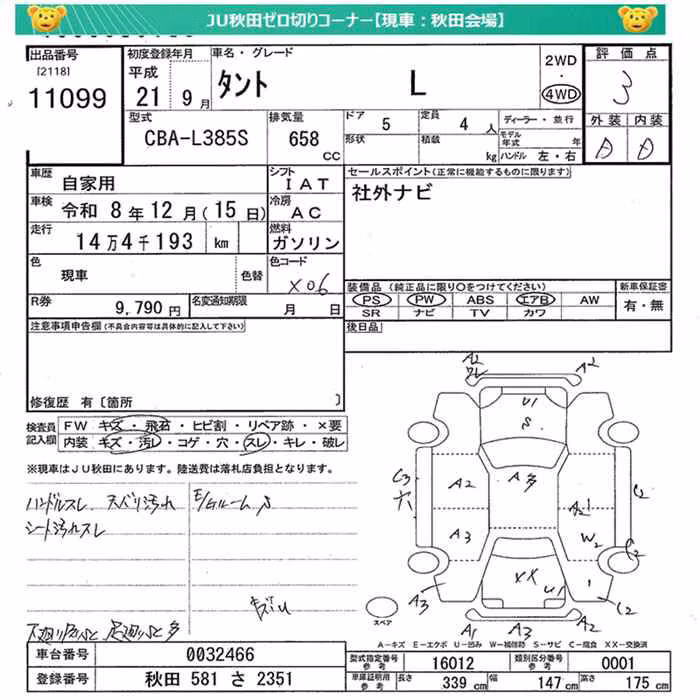 JU秋田ゼロ切りコーナー【現車：秋田会場】
出品番号 初度登録年月 車名・グレード 2WD・4WD 評価点
[2118] 11099 平成 21年 9月 タント L 3
型式 CBA-L385S 排気量 658 CC ドア 5 定員 4人 ディーラー・並行 外装 A 内装
形状 積載 kg モデル年式 年 ハンドル 左・右
車歴 自家用 シフト IAT セールスポイント(正常に機能するものに限ります)
車検 令和 8年 12月(15日) 冷房 AC 社外ナビ
走行 14万4千193 km 燃料 ガソリン
色 現車 色替 色コード X06
装備品(純正品に限り○をつけてください) 新車保証書
PS PW ABS エアB AW 有・無
SR ナビ TV カワ
R券 9,790円 名変通知期限 月 日
後日品
注意事項申告欄(不具合内容等は具体的に記入して下さい)
修復歴 有〔箇所 〕
検査員記入欄 FW キズ・飛石・ヒビ割・リペア跡・×要
内装 キズ・汚レ・コゲ・穴・スレ・キレ・破レ
※現車はJU秋田にあります。陸送費は落札店負担となります。
ハンドルスレ スベリ汚れ E/GルームS
シート汚れスレ
キズU
A2 A2
U1
S
A多
C3 A2 A2 C2
穴
A3 W2 C2
XX U1
A3 A1 A2 C2
スペア
A－キズ E－エクボ U－凹み W－補修跡 S－サビ C－腐食 XX－交換済
車台番号 0032466 型式指定番号 参考 16012 類別区分番号 参考 0001
登録番号 秋田 581 さ 2351 車庫証明用 参考 長さ 339 cm 幅 147 cm 高さ 175 cm